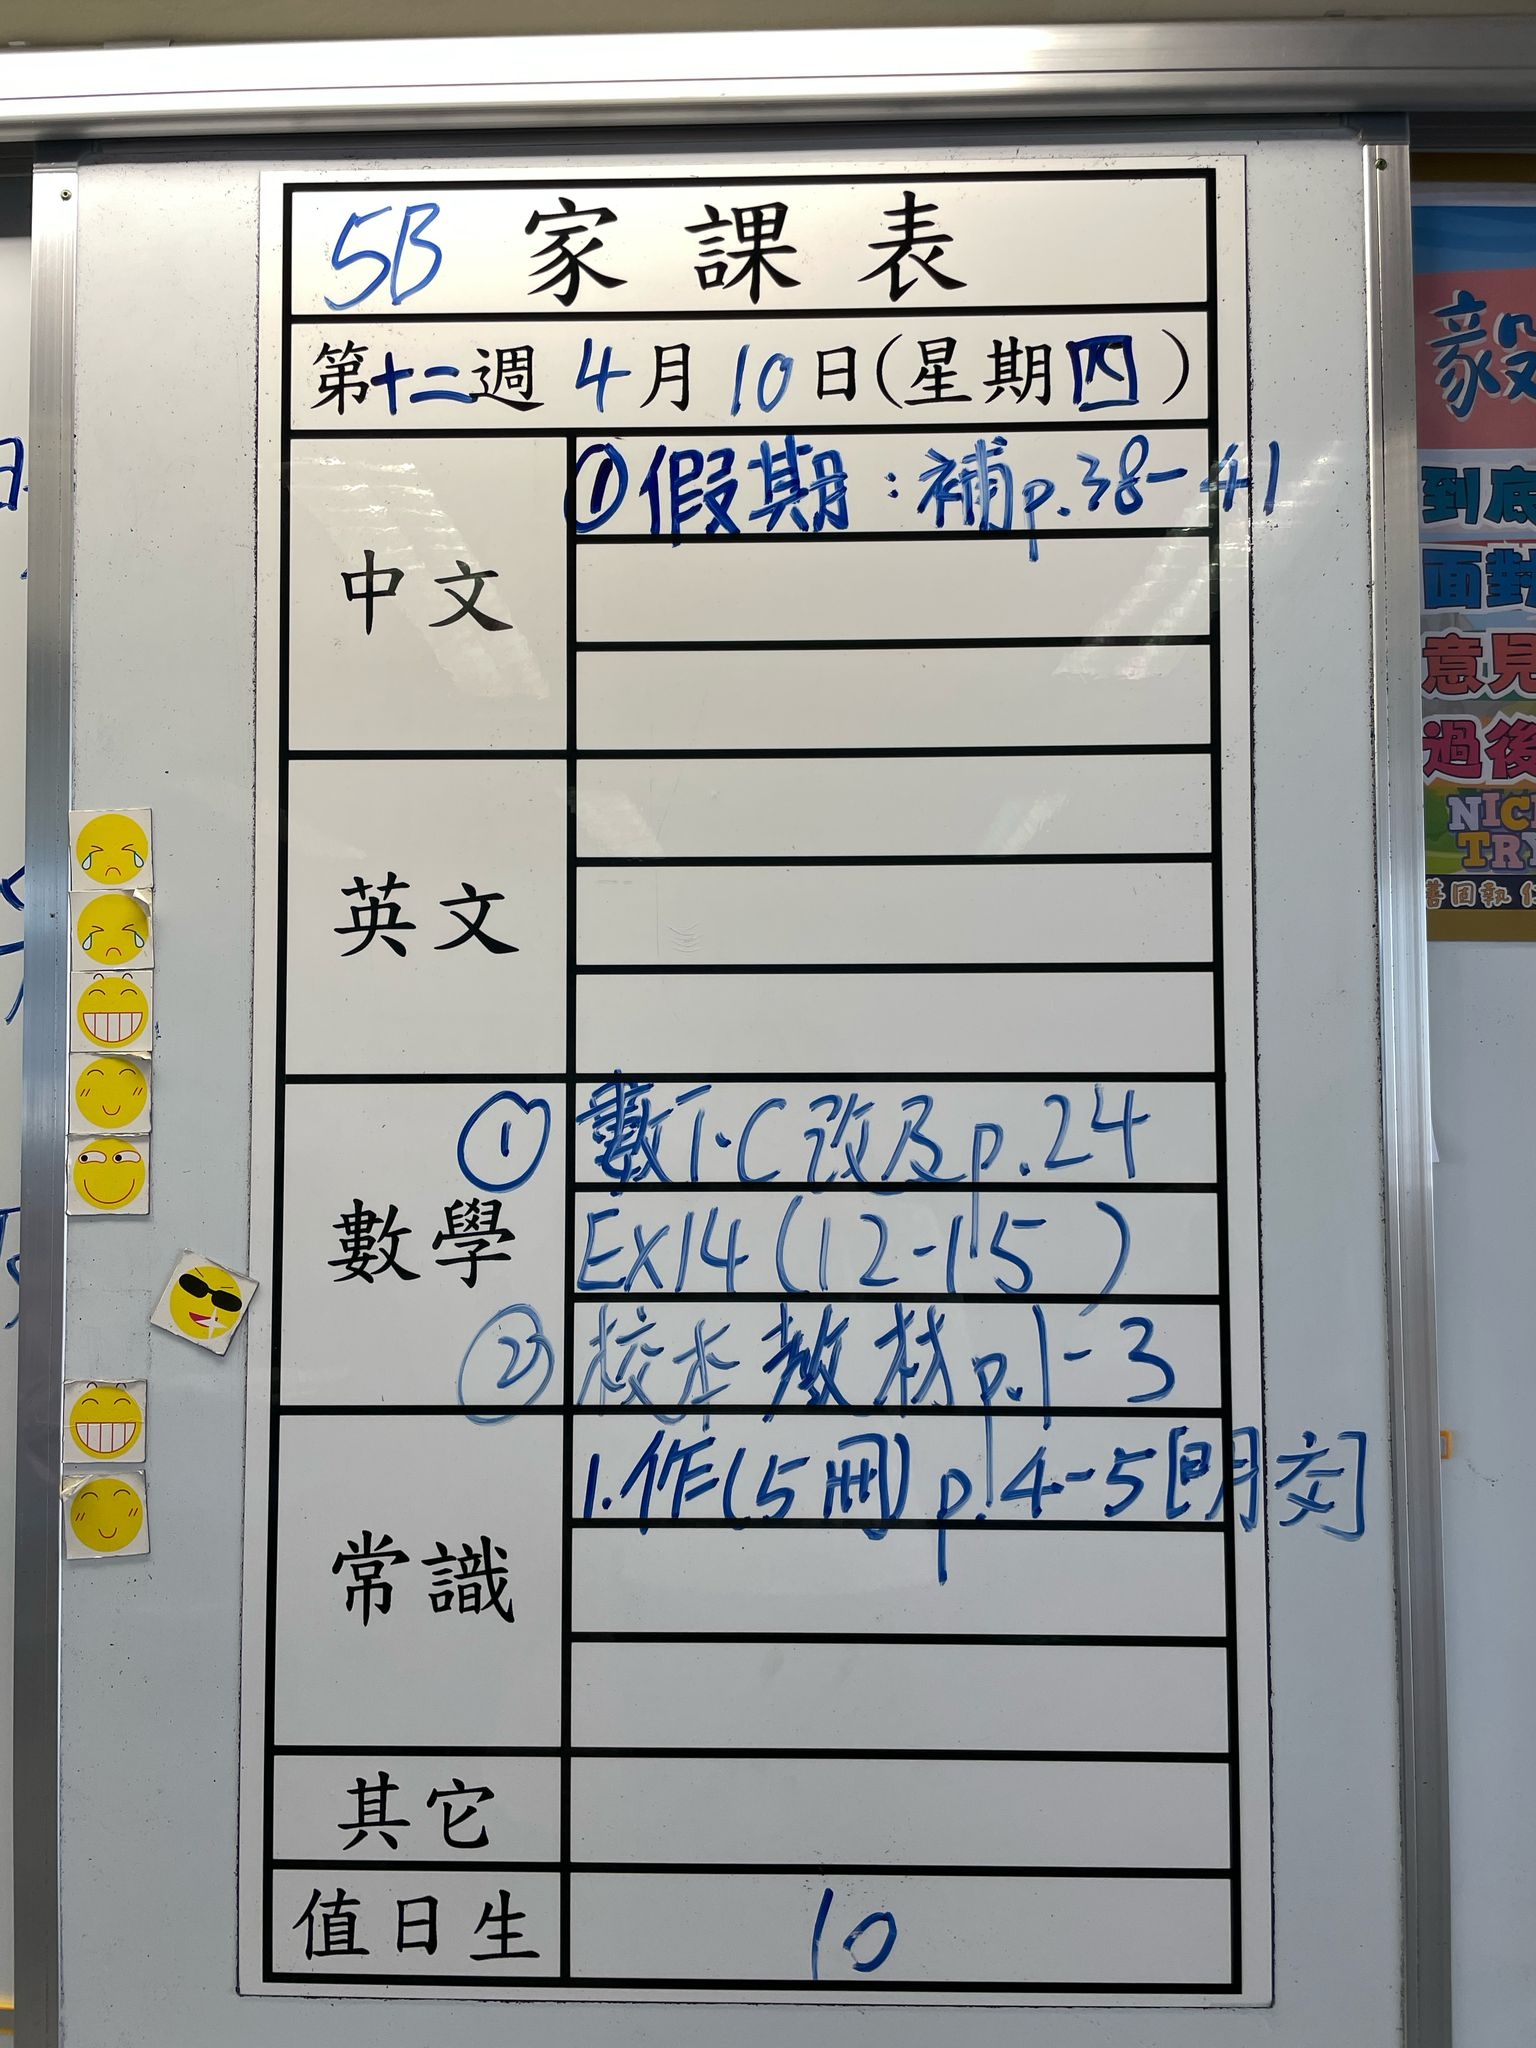 5B 家課表
第十二週 4月10日(星期四)
中文
①假期：補p.38-41
英文
數學
① 數T.C改及p.24
Ex14(12-15)
② 校本教材p.1-3
常識
1.作(5冊)p.4-5[明交]
其它
值日生
10
到底
面對
意見
過後